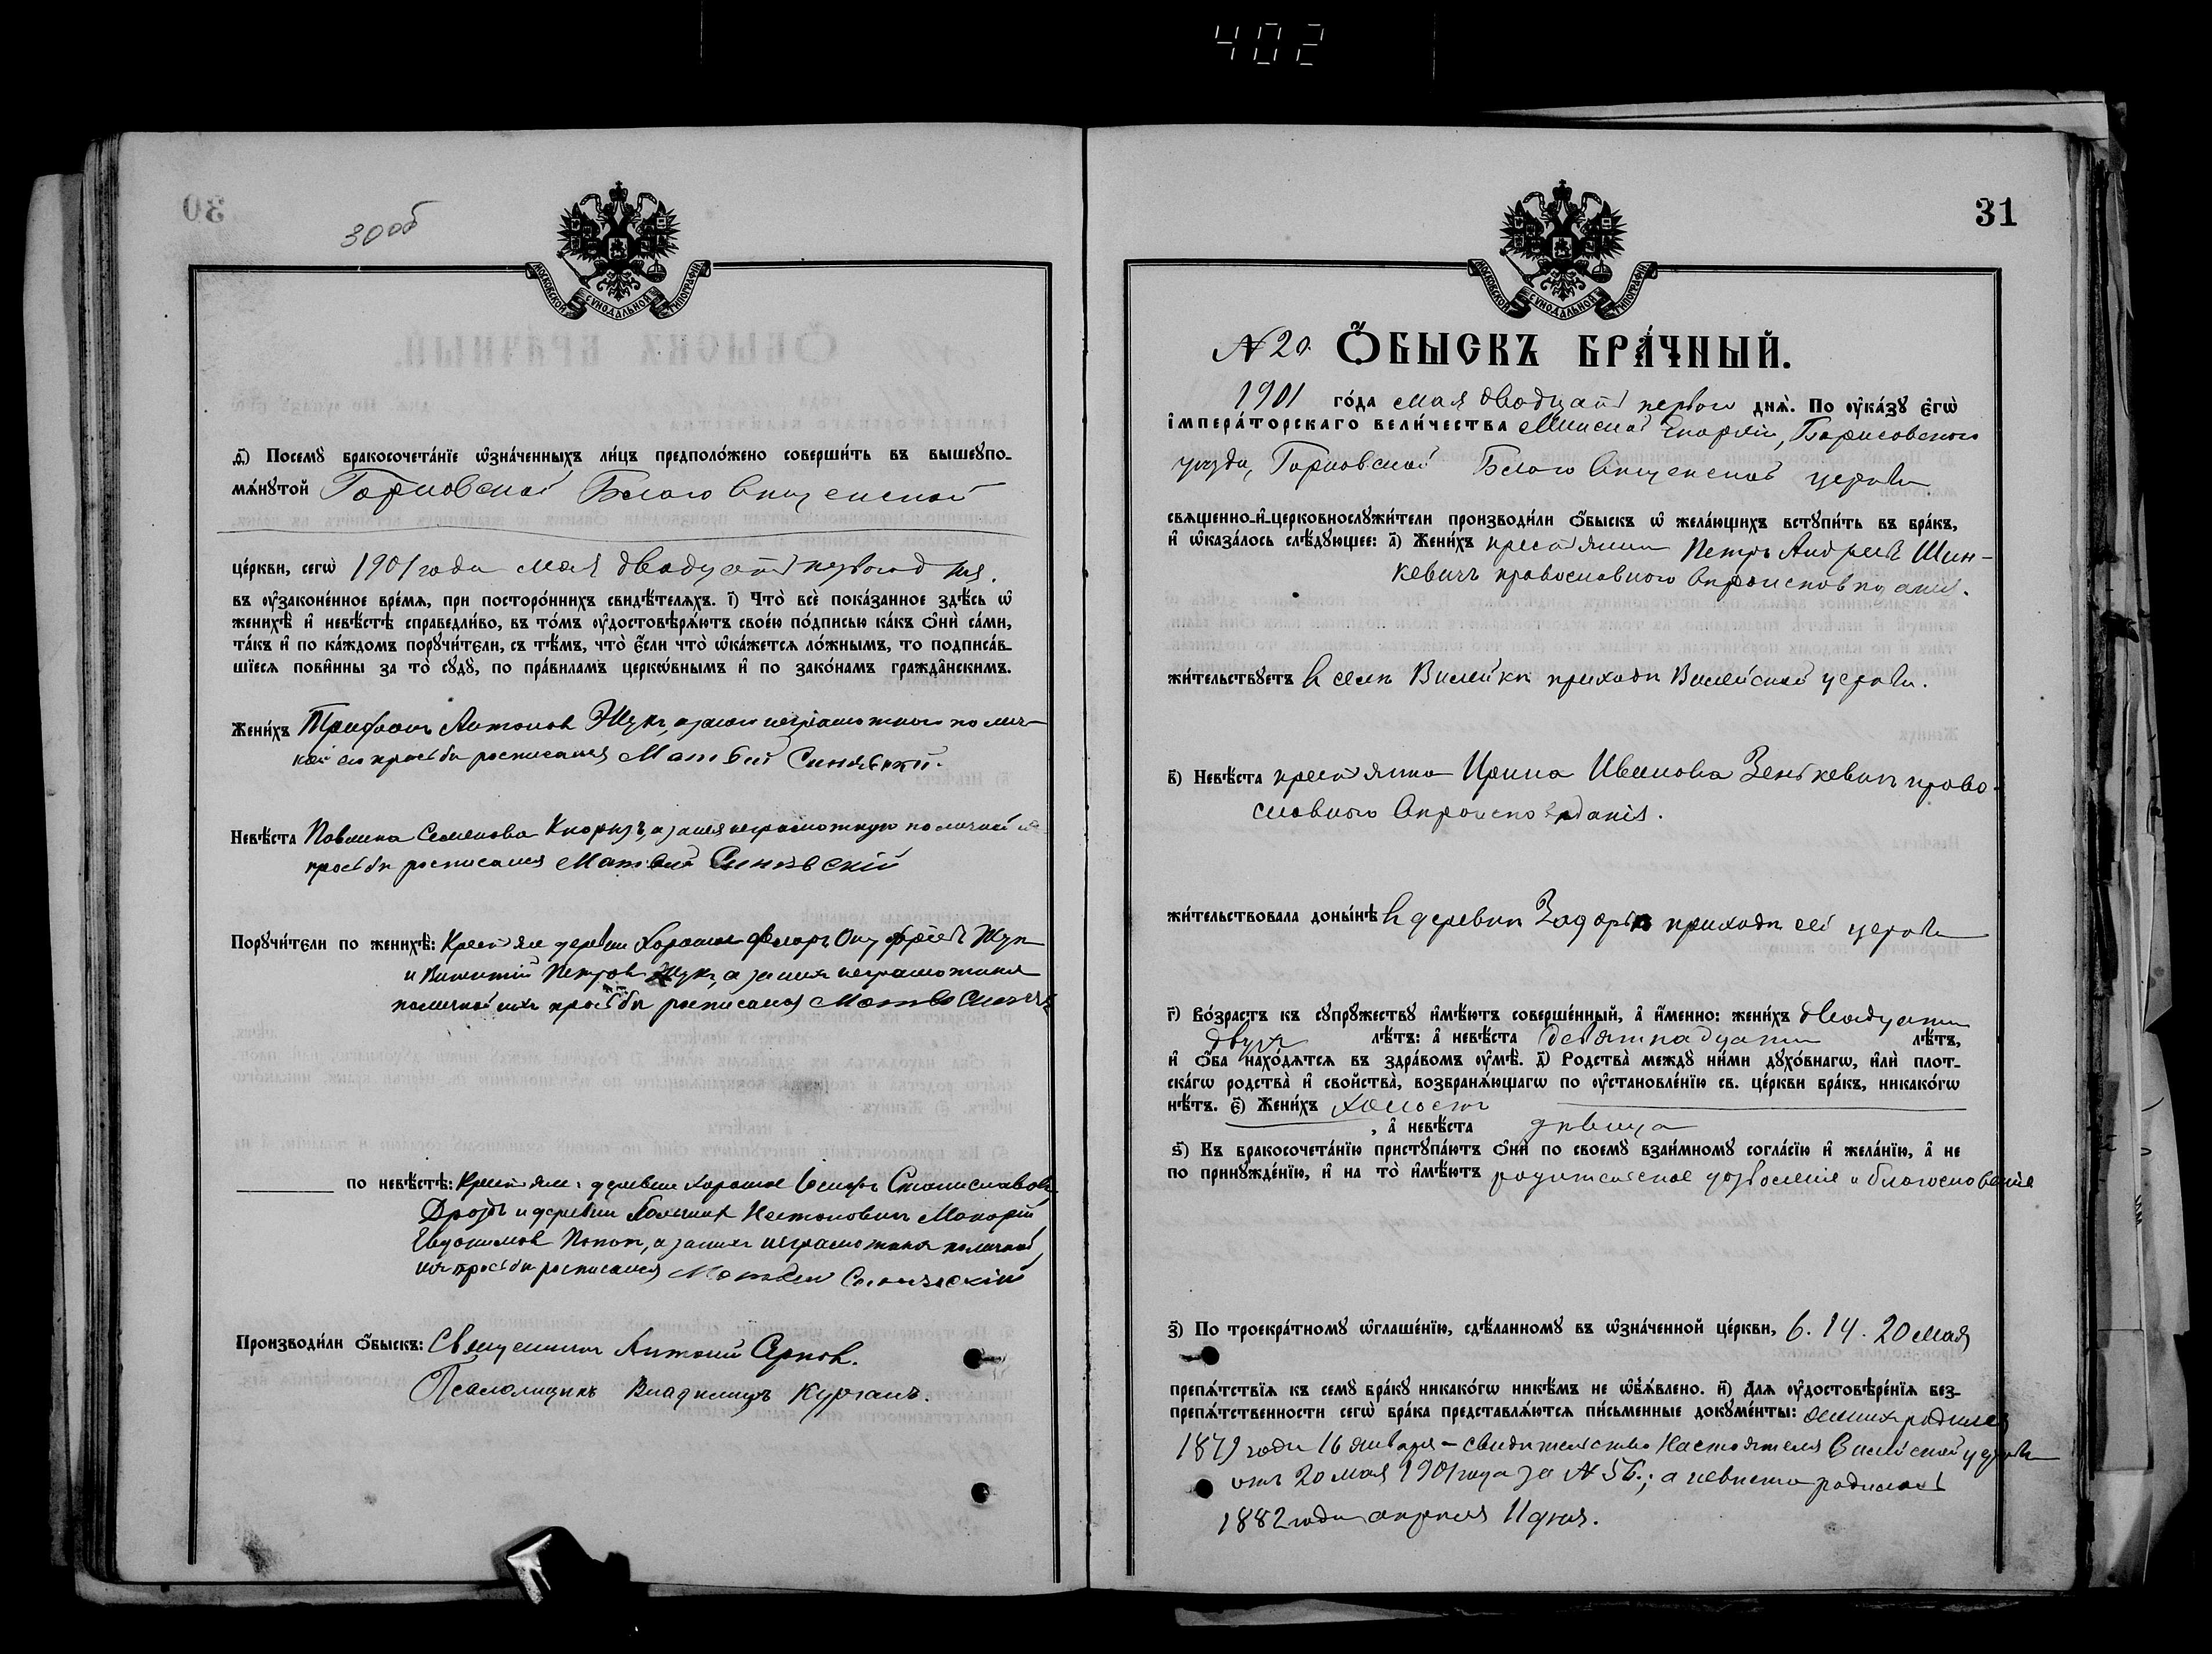 402
30
30об
МОСКОВСКОЙ СѴНОДАЛЬНОЙ ТИПОГРАФІИ
д҃) Посемꙋ̀ бракосочета́нїе ѡ҆зна́ченныхъ ли́цъ предполо́жено соверши́ть въ вышеꙋпо-
мѧ́нꙋтой Горновской Благовѣщенской
це́ркви, сегѡ̀ 1901 года мая двадцать первого дня.
въ ᲂу҆законе́нное вре́мѧ, при посторо́ннихъ свидѣ́телѧхъ. і҃) Что̀ всѐ пока́занное здѣ́сь ѡ҆
женихѣ̀ и҆ невѣ́стѣ справедли́во, въ то́мъ ᲂу҆достовѣрѧ́ютъ свое́ю по́дписью ка́къ ѻ҆нѝ са́ми,
та́къ и҆ по ка́ждомъ порꙋчи́тєли, съ тѣ́мъ, что̀ є҆́сли что̀ ѡ҆ка́жетсѧ ло́жнымъ, то подписа́в-
шїесѧ пови́нны за то̀ сꙋдꙋ̀, по пра́виламъ церкѡ́внымъ и҆ по зако́намъ гражда́нскимъ.
Жени́хъ Трифонъ Антоновъ Жукъ, а за него неграмотного по лич-
ной его просьбѣ росписался Матвей Синявский.
Невѣ́ста Павлина Семенова Кнорузъ, а за нея неграмотную по личной ея
просьбѣ росписался Матвей Синявскій
Порꙋчи́тєли по женихѣ̀: Крестьяне деревни Хорошое Федоръ Онуфріевъ Жукъ
и Викентій Петровъ Жукъ, а за них неграмотных
по личной ихъ просьбѣ росписался Матвей
по невѣ́стѣ: Крестьяне: деревни Хорошое Іосифъ Станиславовъ
Дроздъ и деревни Макарій
Евдокимовъ Попокъ, а за нихъ неграмотныхъ по личной
ихъ просьбѣ росписался Матвей Синявскій
Производи́ли ѻ҆́быскъ: Священникъ Антоній Серновъ.
Псаломщикъ Владимиръ Курганъ.
31
МОСКОВСКОЙ СѴНОДАЛЬНОЙ ТИПОГРАФІИ
N 20. Ѻ҆́БЫСКЪ БРА́ЧНЫЙ.
1901 го́да мая двадцать первого днѧ̀. По ᲂу҆ка́зꙋ є҆гѡ̀
і҆мпера́торскаго вели́чества Минской Епархіи, Борисовского
уезда, Горновской Благовѣщенской церкви
свѧщенно-и҆-церковнослꙋжи́тели производи́ли ѻ҆́быскъ ѡ҆ жела́ющихъ встꙋпи́ть въ бра́къ,
и҆ ѡ҆каза́лось слѣ́дꙋющее: а҃) Жени́хъ крестьянинъ Петръ Андреевъ Шин-
кевичъ православного вѣроисповѣданія.
жи́тельствꙋетъ въ селѣ Вилейкѣ прихода Вилейской церкви.
в҃) Невѣ́ста крестьянка Ирина Иванова Зенькевичъ право-
славного вѣроисповѣданія.
жи́тельствовала донынѣ въ деревнѣ Задорье прихода сей церкви
г҃) Во́зрастъ къ сꙋпрꙋ́жествꙋ и҆мѣ́ютъ соверше́нный, а҆ и҆́менно: жени́хъ двадцати
двухъ лѣ́тъ: а҆ невѣ́ста девятнадцати лѣ́тъ,
и҆ ѻ҆́ба нахо́дѧтсѧ въ здра́вомъ ᲂу҆мѣ̀. д҃) Родства̀ междꙋ ни́ми дꙋхо́внагѡ, и҆лѝ плот-
ска́гѡ родства̀ и҆ сво́йства̀, возбранѧ́ющагѡ по ᲂу҆становле́нїю св. це́ркви бра́къ, никако́гѡ
нѣ́тъ. є҃) Жени́хъ холостъ
, а҆ невѣ́ста дѣвица
ѕ҃) Къ бракосочета́нїю пристꙋпа́ютъ ѻ҆нѝ по своемꙋ̀ взаи́мномꙋ согла́сїю и҆ жела́нїю, а҆ не
по принꙋжде́нїю, и҆ на то̀ и҆мѣ́ютъ родительское дозволение и благословение
з҃) По троекра́тномꙋ ѡ҆глаше́нїю, сдѣ́ланномꙋ въ ѡ҆зна́ченной це́ркви, 6. 14. 20 мая
препѧ́тствїѧ къ семꙋ̀ бра́кꙋ никако́гѡ никѣ́мъ не ѡ҆б̾ѧ́влено. и҃) Длѧ̀ ᲂу҆достовѣре́нїѧ без-
препѧ́тственности сегѡ̀ бра́ка представлѧ́ютсѧ пи́сьменные докꙋме́нты: жених родился
1879 года 16 января – свидетельство Настоятеля Вилейской церкви
отъ 20 мая 1901 года за N 56.; а невѣста родилась
1882 года апреля 11 дня.